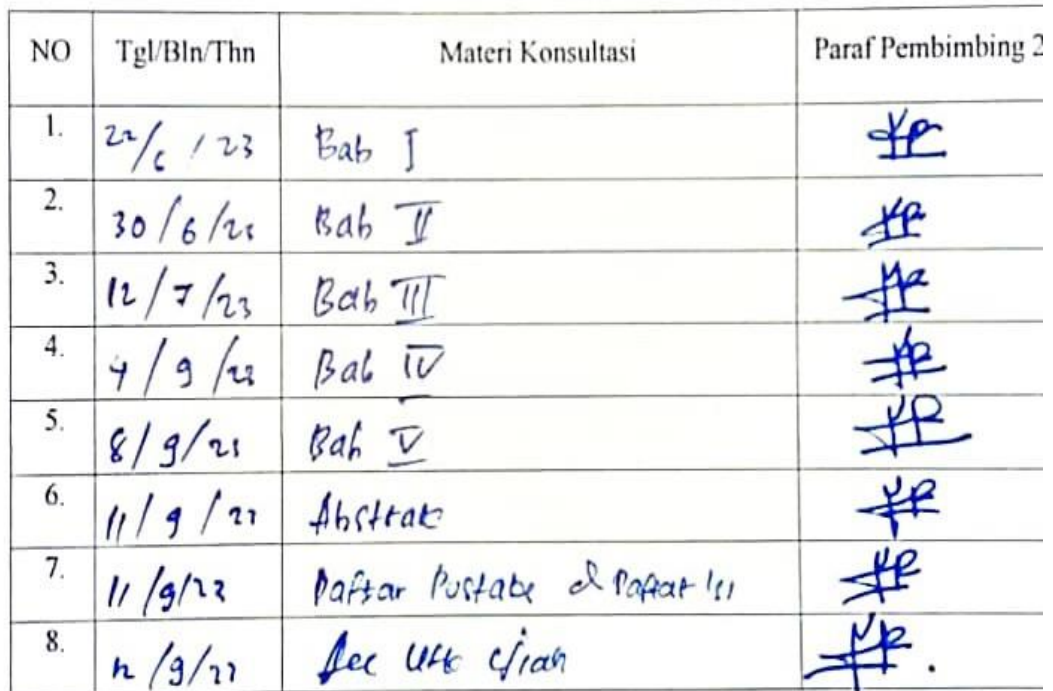 NO Tgl/Bln/Thn Materi Konsultasi Paraf Pembimbing 2
1. 22/6/23 Bab I
2. 30/6/23 Bab II
3. 12/7/23 Bab III
4. 4/9/23 Bab IV
5. 8/9/23 Bab V
6. 11/9/23 Abstrak
7. 11/9/23 Daftar Pustaka & Daftar Isi
8. 12/9/23 Acc Utk Ujian